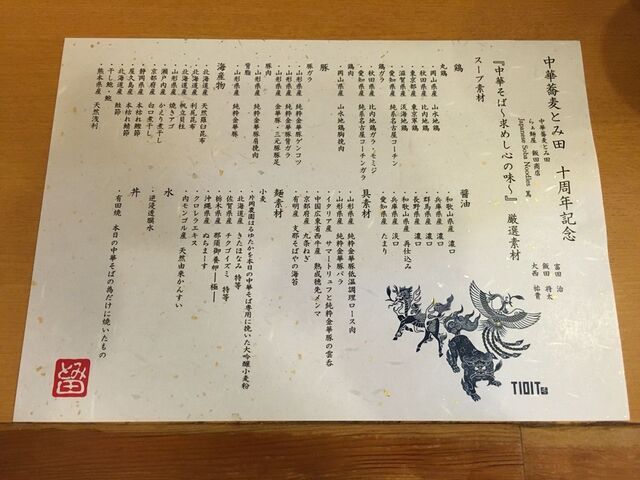 中華蕎麦とみ田 十周年記念
中華蕎麦とみ田 富田 治
らぁ麺屋 飯田商店 飯田 将太
Japanese Soba Noodles 蔦 大西 祐貴
『中華そば〜求めし心の味〜』 厳選素材
スープ素材
鶏
丸鶏
・岡山県産 山水地鶏
・秋田県産 比内地鶏
・東京都産 東京軍鶏
・滋賀県産 淡海地鶏
・愛知県産 純系名古屋コーチン
鶏ガラ
・秋田県産 比内地鶏ガラ・モミジ
・愛知県産 純系名古屋コーチンガラ
鶏肉
・岡山県産 山水地鶏胸挽肉
豚
豚ガラ
・山形県産 純粋金華豚ゲンコツ
・山形県産 純粋金華豚背ガラ
・山形県産 金華豚・三元豚豚足
豚肉
・山形県産 純粋金華豚肩挽肉
背脂
・山形県産 純粋金華豚
海産物
・北海道産 天然羅臼昆布
・北海道産 利尻昆布
・北海道産 帆立貝柱
・山形県産 焼きアゴ
・瀬戸内産 かえり煮干し
・京都府産 白口煮干し
・静岡県産 本枯れ鰹節
・屋久島産 本枯れ鯖節
・北海道産 鮭節
・干し鮑・鮑
・熊本県産 天然浅利
醤油
・和歌山県産 濃口
・兵庫県産 濃口
・群馬県産 濃口
・長野県産 濃口
・和歌山県産 再仕込み
・兵庫県産 淡口
・愛知県産 たまり
具素材
・山形県産 純粋金華豚低温調理ロース肉
・山形県産 純粋金華豚バラ
・イタリア産 サマートリュフと純粋金華豚の雲呑
・中国広東省西牛産 熟成穂先メンマ
・京都府産 九条ねぎ
・有明産 支那そばやの海苔
麺素材
小麦
・片岡農園はるゆたかを本日の中華そば専用に挽いた大吟醸小麦粉
・北海道産 きたほなみ 特等
・佐賀県産 チクゴイズミ 特等
・栃木県産 那須御養卵―極―
・沖縄県産 ぬちまーす
・クロレラエキス
・内モンゴル産 天然由来かんすい
水
・逆浸透膜水
丼
・有田焼 本日の中華そばの為だけに焼いたもの
TIOIT
とみ田